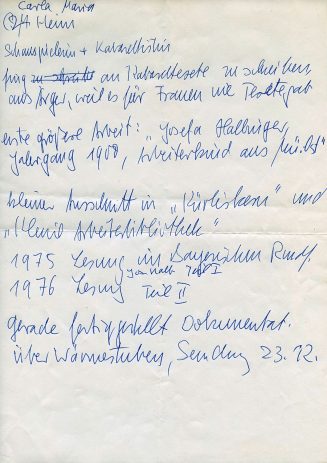 Carla Maria
Heim
Schauspielerin + Kabarettistin
fing an Kabarettexte zu schreiben
aus Ärger, weil es für Frauen nie Texte gab
erste größere Arbeit: „Josefa Halbinger,
Jahrgang 1900, Arbeiterkind aus
kleiner Ausschnitt in „Kürbiskern" und
„Kleine Arbeiterbibliothek"
1975 Lesung im Bayerischen Rundf.
Teil I
1976 Lesung Teil II
gerade fertiggestellt Dokumentat.
über Wärmestuben, Sendung 23.12.